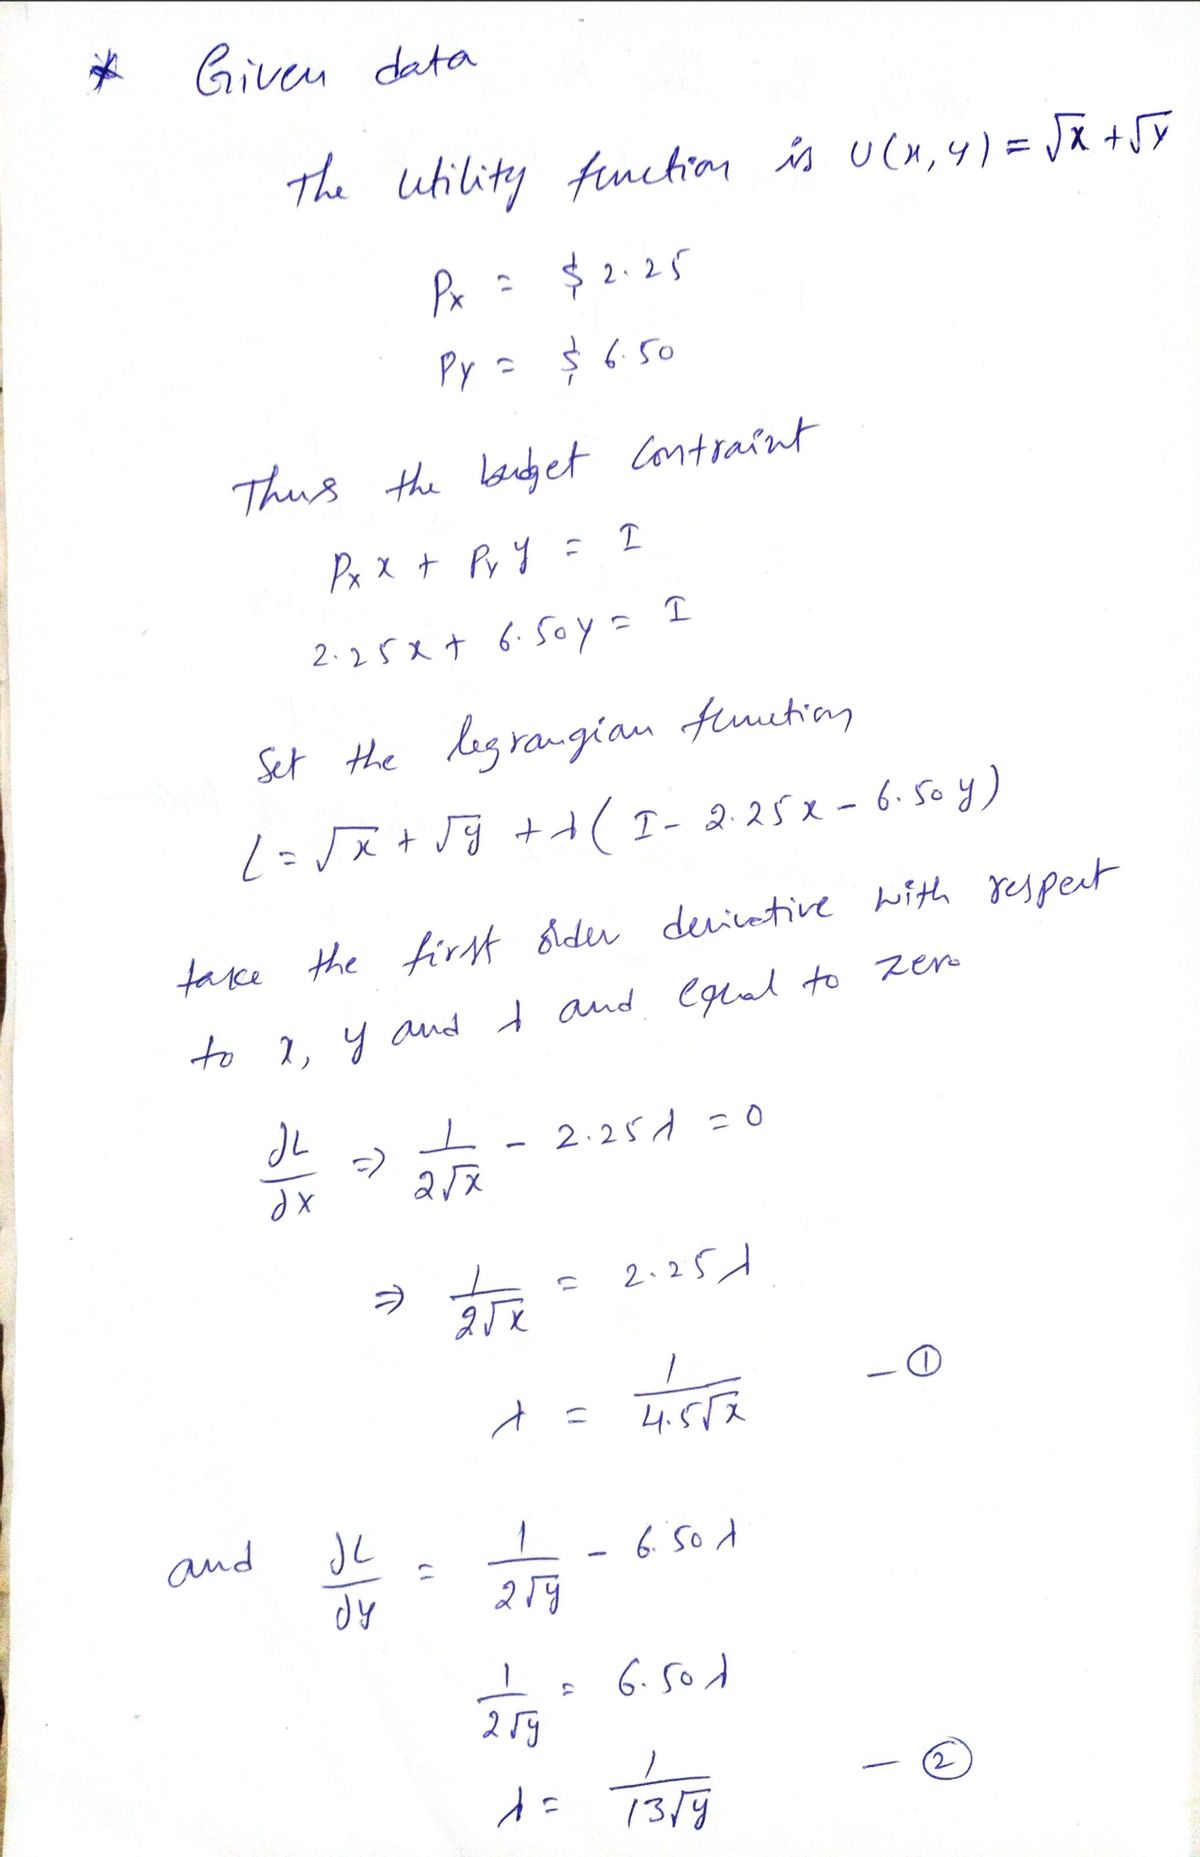 * Given data
The utility function is U(x,y) = √x + √y
Px = $ 2.25
Py = $ 6.50
Thus the budget contraint
Px x + Py y = I
2.25x + 6.50y = I
Set the legrangian function
L = √x + √y + λ( I - 2.25x - 6.50y)
take the first order derivative with respect
to x, y and λ and equal to zero
∂L/∂x ⇒ 1/2√x - 2.25λ = 0
⇒ 1/2√x = 2.25λ
λ = 1/4.5√x - ①
and ∂L/∂y = 1/2√y - 6.50λ
1/2√y = 6.50λ
λ = 1/13√y - ②